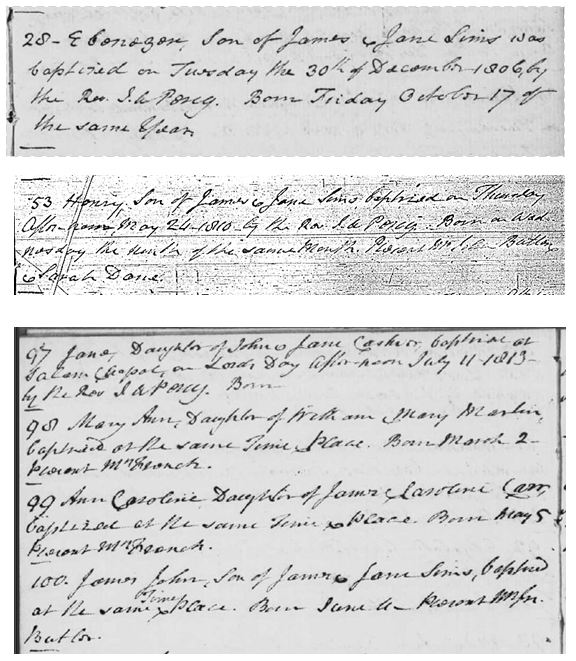 28- Ebenezer, Son of James & Jane Sims was
baptized on Tuesday the 30th of December 1806, by
the Rev. J. a Percy. Born Friday October 17 of
the same Year.
53 Henry, Son of James & Jane Sims baptized on Thursday
Afternoon May 24-1810- by the Rev. J. a Percy. Born on Wed-
nesday the ninth of the same Month. Present Butler
& Sarah Dane.
97 Jane, Daughter of John & Jane baptized at
Salem Chapel, on Lords Day Afternoon July 11-1813-
by the Rev J a Percy. Born
98 Mary Ann, Daughter of William & Mary Martin,
baptized at the same Time & Place. Born March 2-
Present Mrs French.
99 Ann Caroline Daughter of James & Caroline Carr,
baptized at the same Time & Place. Born May 5
Present Mrs French.
100. James John, Son of James & Jane Sims, baptized
at the same Time & Place. Born June 4- Present
Butler.